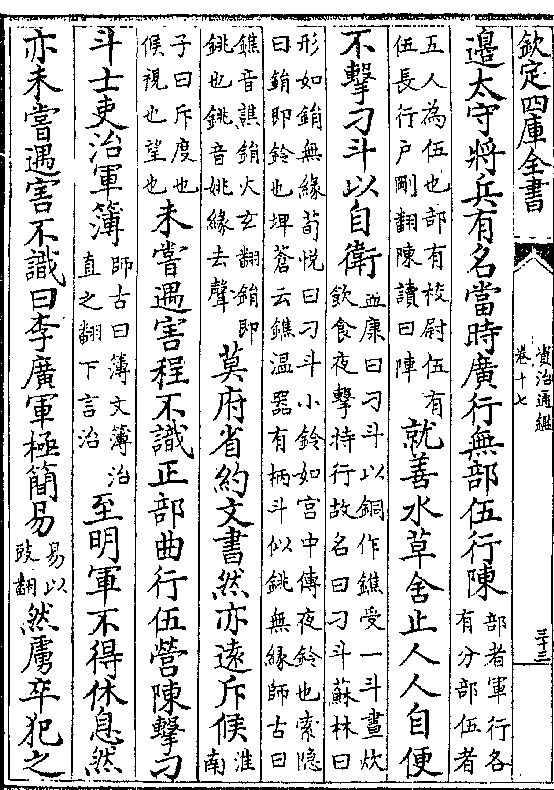 欽定四庫全書
資治通鑑
卷十七
三十三
邉太守將兵有名當時廣行無部伍行陳部者軍行各有分部伍者
五人為伍也部有校尉伍有伍長行戸剛翻陳讀曰陣就善水草舍止人人自便
不擊刁斗以自衛孟康曰刁斗以銅作鐎受一斗晝炊飲食夜擊持行故名曰刁斗蘇林曰
形如銷無緣荀悦曰刁斗小鈴如宫中傳夜鈴也索隠曰銷即鈴也埤蒼云鐎温器有柄斗似銚無緣師古曰
鐎音譙銷火玄翻銷即銚也銚音姚緣去聲莫府省約文書然亦逺斥候淮南
子曰斥度也候視也望也未嘗遇害程不識正部曲行伍營陳擊刁
斗士吏治軍簿師古曰簿文簿治直之翻下言治至明軍不得休息然
亦未嘗遇害不識曰李廣軍極簡易易以豉翻然虜卒犯之